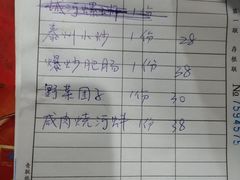 泰州小炒 1份 28
爆炒肥肠 1份 38
野菜团子 1份 30
咸肉烧河蚌 1份 38
第一联 存根联
No 7594575